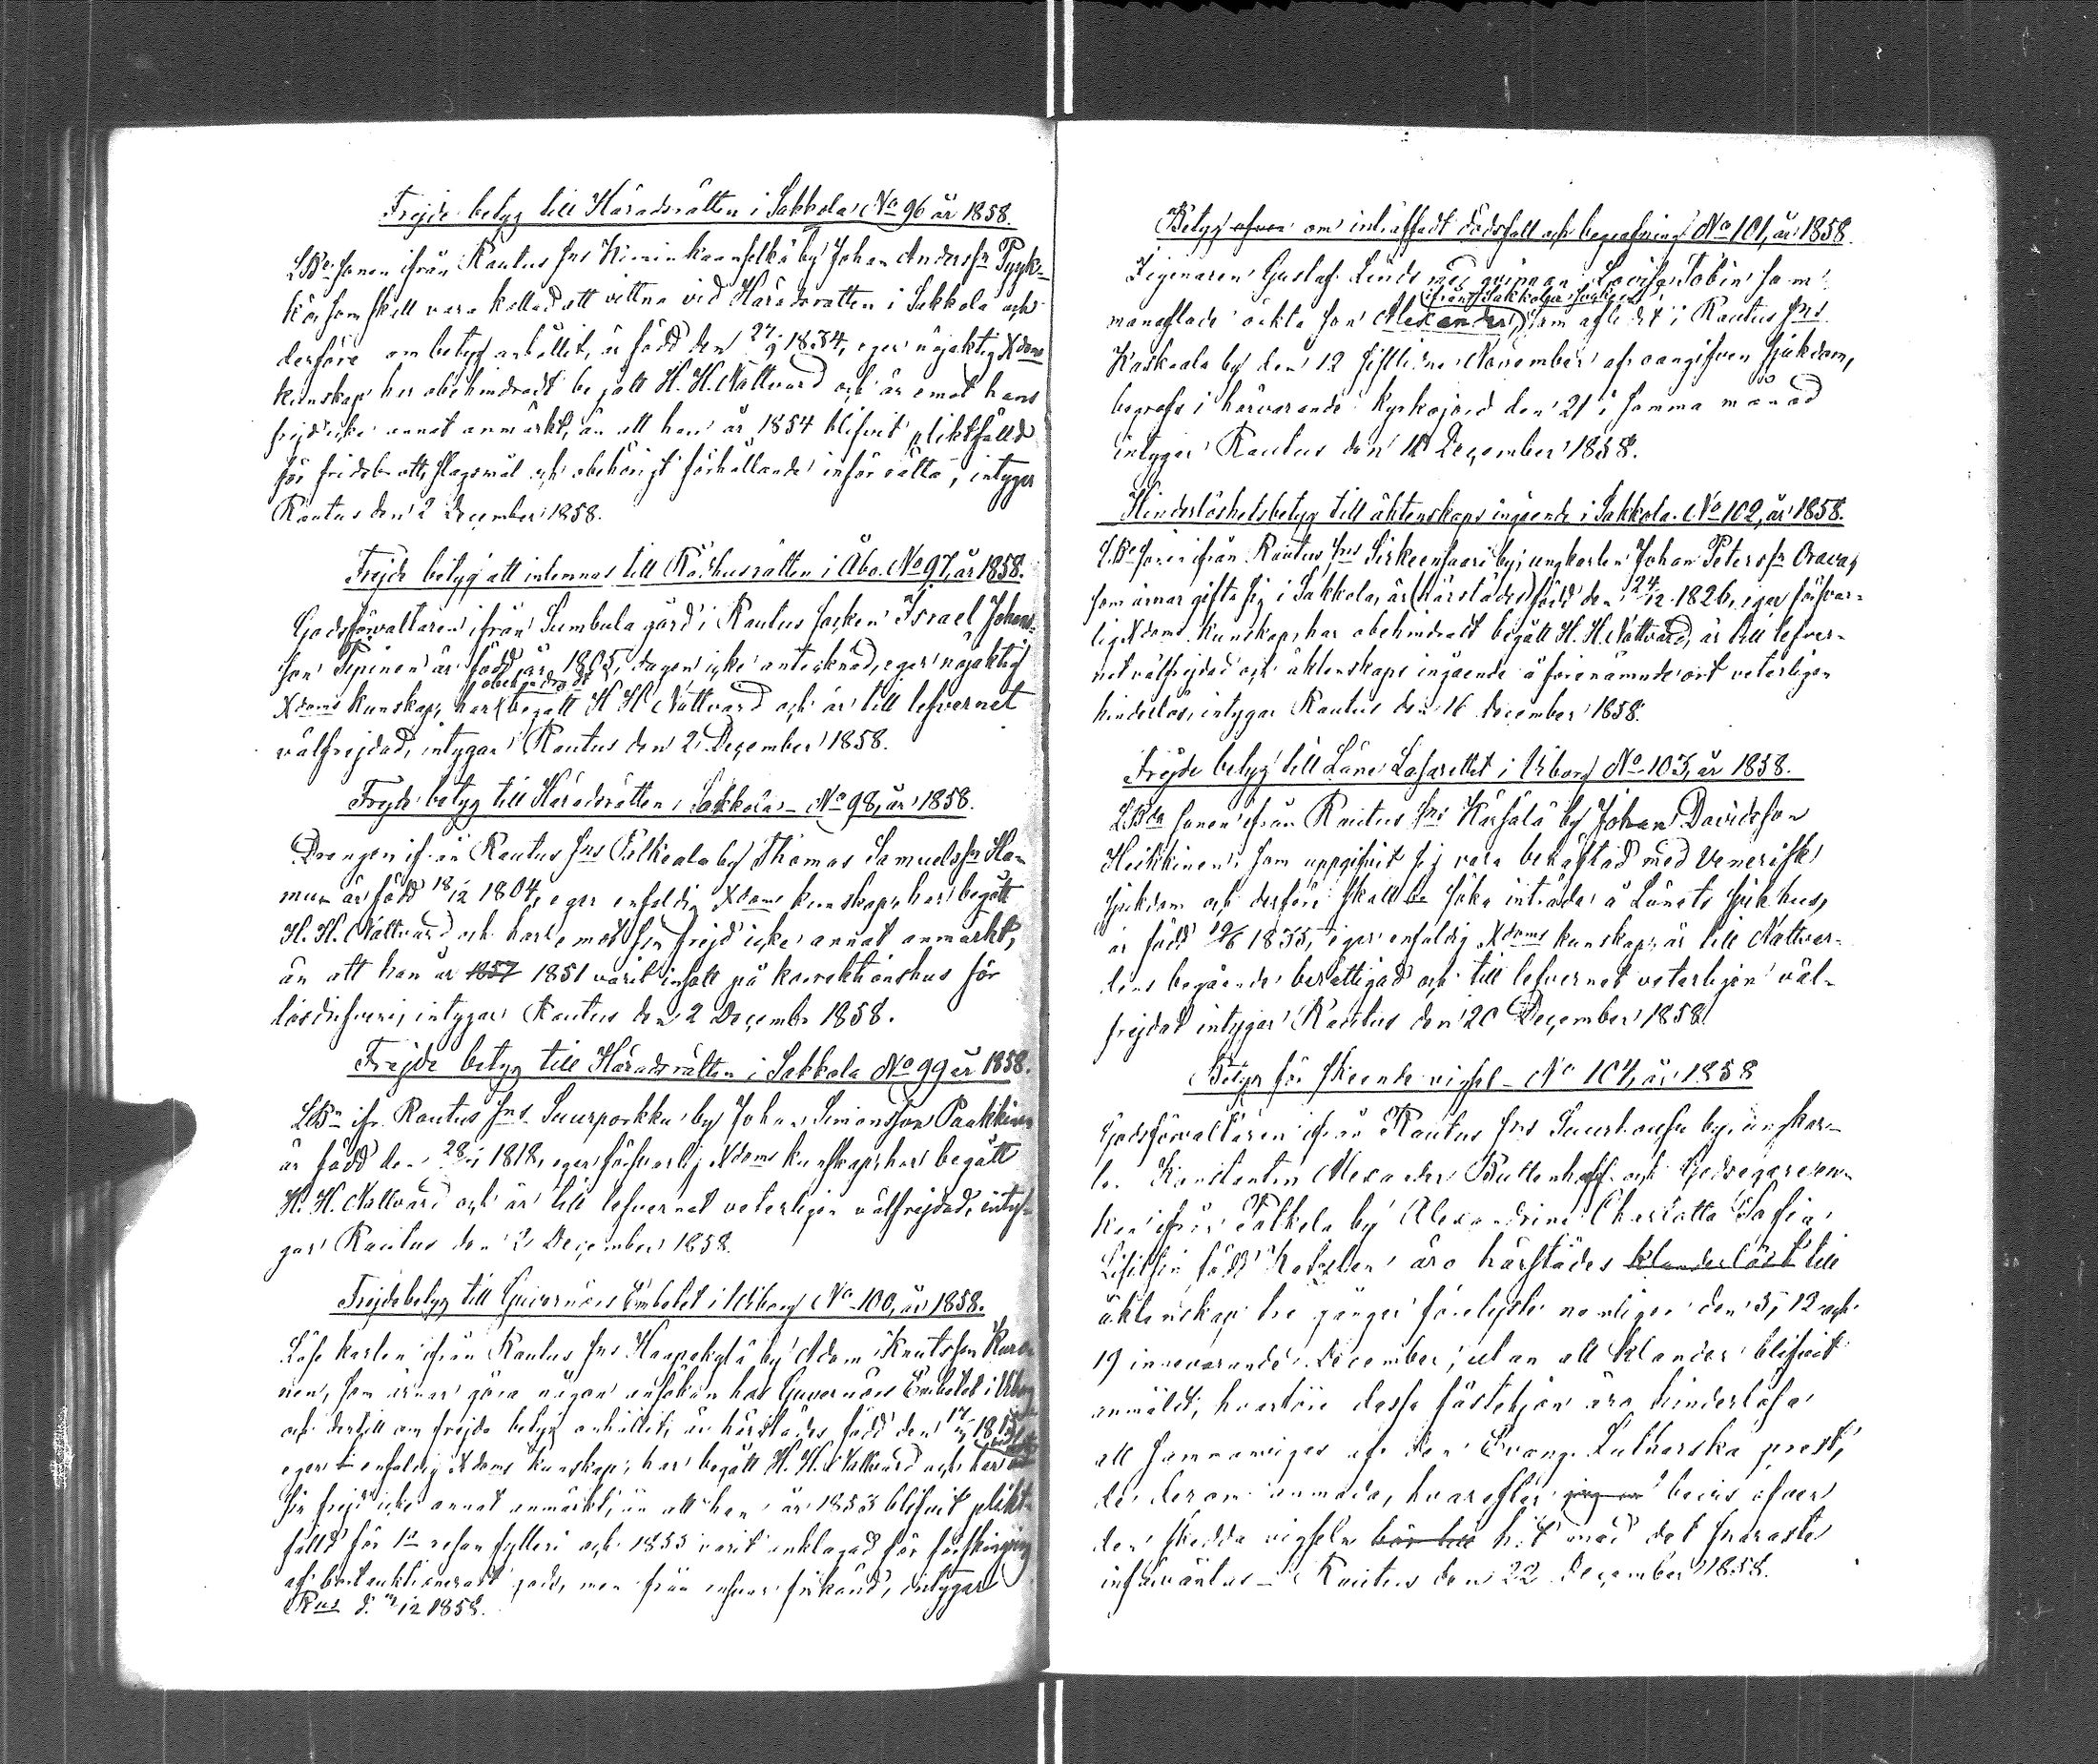 Frejde betyg till Häradsrätten i Sakkola No 96 år 1858.
LBe sonen ifrån Rautus Sns Kiimin kaanselkä by Johan Anderssn Pyyk-
kö, som skall vara kallad att vittna vid Häradsrätten i Sakkola och
derföre om betyg anhållit, är född den 27/9 1834, eger nöjaktig Xdoms
kunskap, har obehindradt begått H. H. Nattvard och är emot hans
frejd icke annat anmärkt, än att han år 1854 blifvit pliktfälld
för fridsbrott, slagsmål och obehörigt förhållande inför rätta, intygar
Rautus den 2 December 1858.
Frejde betyg att inlemnas till Rådhusrätten i Åbo. No 97, år 1858.
Godsförvaltaren ifrån Sumbula gård i Rautus socken Israel Johans-
son Tipinen är född år 1805, dagen icke antecknad, eger nöjaktig
obehindradt
Xdoms kunskap, har begått H H Nattvard och är till lefvernet
välfrejdad, intygar Rautus den 2 December 1858.
Frejde betyg till Häradsrätten i Sakkola - No 98, år 1858.
Drengen ifrån Rautus Sns Palkeala by Thomas Samuelssn Ha-
mun är född 18/12 1804, eger enfaldig Xdoms kunskap, har begått
H. H. Nattvard och har emot sin frejd icke annat anmärkt,
än att han år 1857 1851 varit insatt på korrektionshus för
lösdrifveri, intygar Rautus den 2 Decembr 1858.
Frejde betyg till Häradsrätten i Sakkola No 99 år 1858.
LBn ifr. Rautus Sns Suurporkku by Johan Simonsson Paukkunen
är född den 28/1 1818, eger försvarlig Xdoms kunskap, har begått
H. H. Nattvard och är till lefvernet veterligen välfrejdad, inty-
gar Rautus den 2 December 1858.
Frejdebetyg till Guvernörs Embetet i Wiborg No 100, år 1858.
Löse karlen ifrån Rautus Sns Haapakylä by Adam Knutsson
nen, som ärnar göra någon ansökan hos Guvernörs Embetet i Wiborg
och dertill om frejde betyg anhållit, är härstädes född den 17/ 18
eger enfaldig Xdoms kunskap, har begått H. H. Nattvard och har
sin frejd icke annat anmärkt, än att han år 1853 blifvit plikt-
fälld för 1a resan fylleri och 1855 varit anklagad för förskingring
af bortauktioneradt gods, men från ansvar frikänd, intygar
Rus d. /12 1858.
Betyg öfver om inträffadt dödsfall och begrafning No 101, år 1858.
Zigenaren Gustaf Linds med qvinnan Lovisa Tobin sam-
ifrån Sakkola socken
manaflade äckta son Alexander, som aflidit i Rautus Sns
Kaskaala by den 12 sistlidne November af oangifven sjukdom,
begrofs i härvarande kyrkojord den 21 i samma månad
intygar Rautus den 10 December 1858.
Hinderlöshetsbetyg till äktenskaps ingående i Sakkola. No 102, år 1858.
LBe sonen ifrån Rautus Sns Sirkeensaari by, ungkarlen Johan Peterssn Orava,
som ärnar gifta sig i Sakkola, är (härstädes) född den 24/12 1826, eger försvar-
lig Xdoms kunskap, har obehindradt begått H. H. Nattvard, är till lefver-
net välfrejdad och äktenskaps ingående å förenämnde ort veterligen
hinderlös, intygar Rautus den 16 December 1858.
Frejde betyg till Läns Lasarettet i Wiborg No 103, år 1858.
LBda sonen ifrån Rautus Sns Kärsälä by Johan Davidsson
Heikkinen, som uppgifvit sig vara behäftad med Venerisk
sjukdom och derföre skall söka inträde å Länets sjukhus,
är född 10/6 1835, eger enfaldig Xdoms kunskap, är till Nattvar-
dens begående berättigad och till lefvernet veterligen väl-
frejdad intygar Rautus den 20 December 1858.
Betyg för skeende vigsel - No 104, år 1858
Godsförvaltaren ifrån Rautus Sns Suurhousu by, ungkar-
len Konstantin Alexander Buttenhoff och Godsegareen-
kan ifrån Palkela by Alexandrine Charlotta Sofia
född äro härstädes klanderlöst till
äktenskap tre gånger förelyste nemligen den 5, 12 och
19 innevarande December, utan att klander blifvit
anmäldt, hvarföre dessa fästehjon äro hinderlösa
att sammanvigas af den Evang. Lutherska prest,
de derom anmoda, hvarefter bevis öfver
den skedda vigseln bör till hit med det snaraste
insändas - Rautus den 22 December 1858.